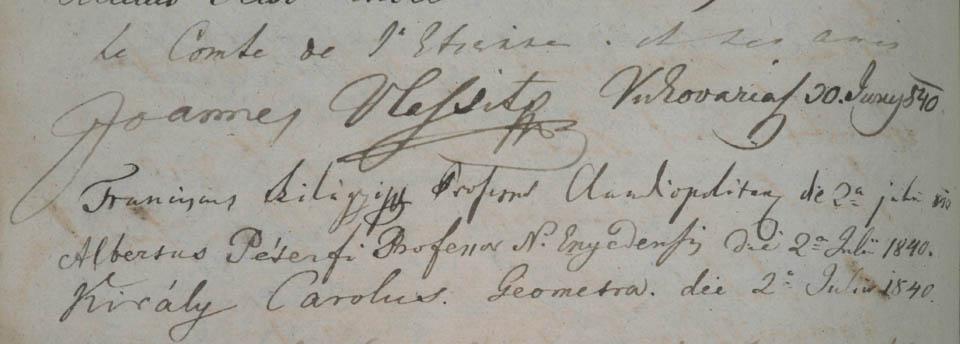 le Comte de St Etienne. et ses amis
Joannes Vlassits Vukovarias 30. Juny 840.
Franciscus Szilágyi Professor Claudiopolitany die 2a julii
Albertus Péterfi Professor N. Enyedensis die 2a Julii 1840.
Király Carolus. Geometra. die 2a Julii 1840.